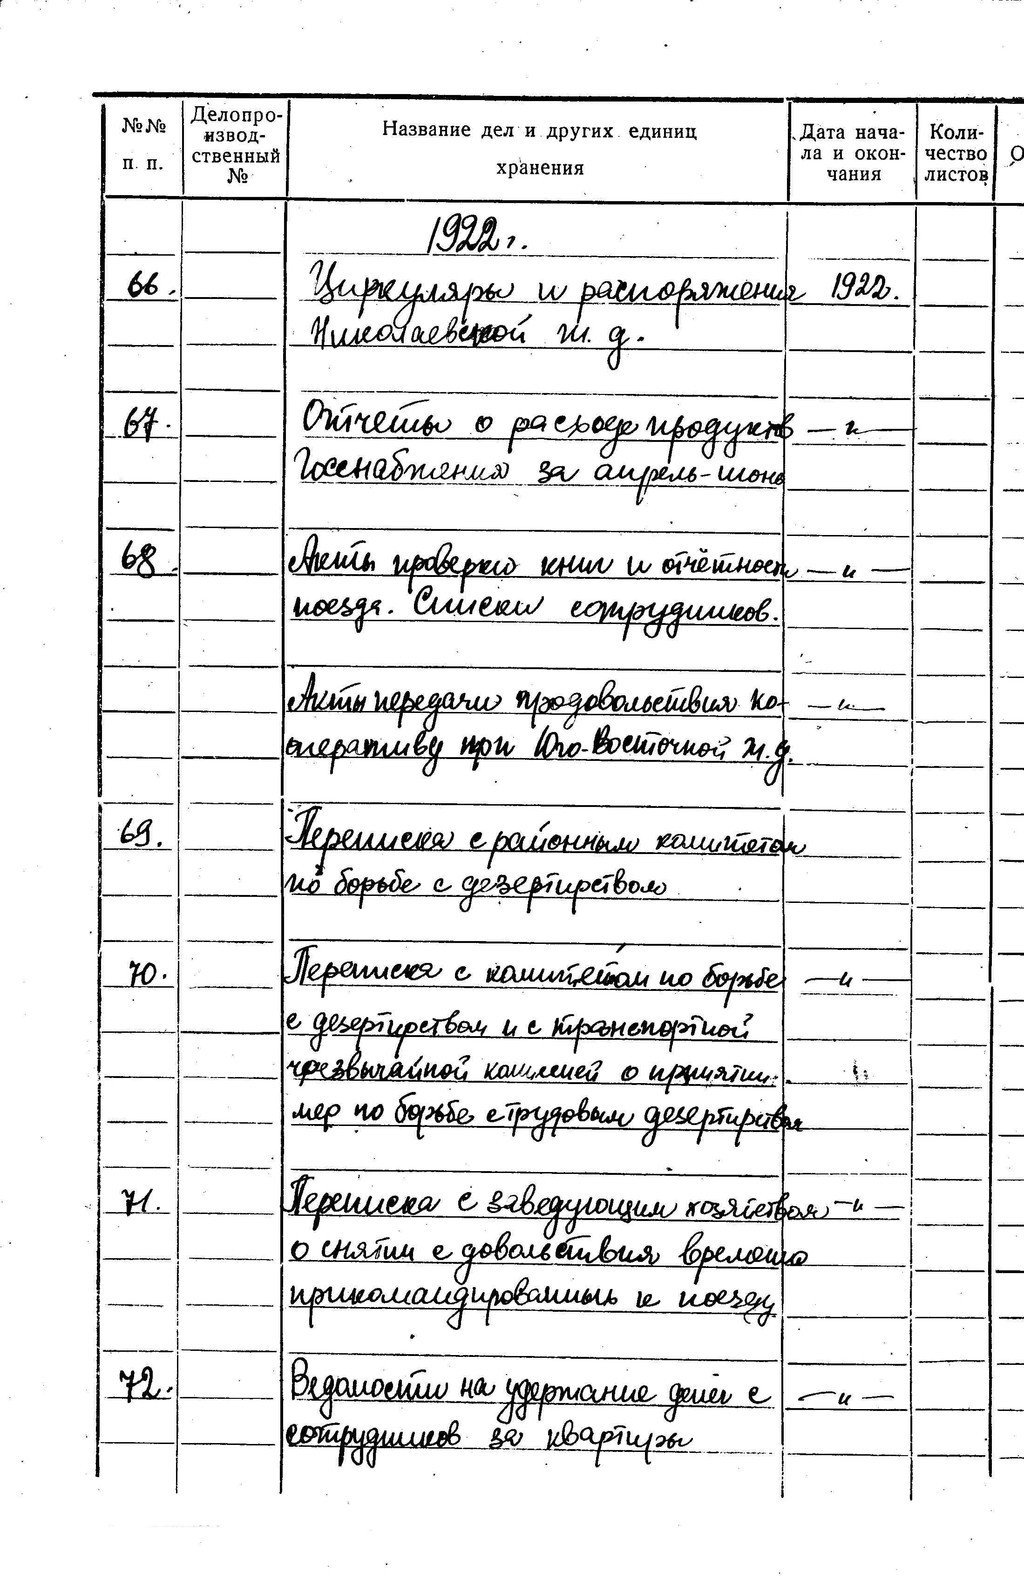 №№ п. п.
Делопро-
извод-
ственный
№
Название дел и других единиц
хранения
Дата нача-
ла и окон-
чания
Коли-
чество
листов
О
1922 г.
66. Циркуляры и распоряжения 1922.
Николаевской ж. д.
67. Отчеты о расходе продуктов —"—
Госснабжения за апрель-июнь
68. Акты проверки книг и отчётности —"—
поезда. Списки сотрудников.
Акты передачи продовольствия ко- —"—
оперативу при Юго-Восточной ж.д.
69. Переписка с районным комитетом
по борьбе с дезертирством
70. Переписка с комитетом по борьбе —"—
с дезертирством и с транспортной
чрезвычайной комиссией о принятии
мер по борьбе с трудовым дезертирством
71. Переписка с заведующим хозяйством —"—
о снятии с довольствия временно
прикомандированных к поезду
72. Ведомости на удержание денег с —"—
сотрудников за квартиры